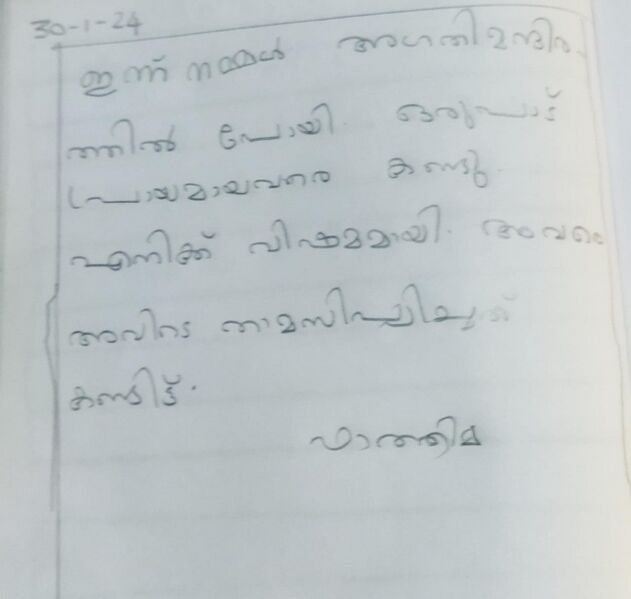 30-1-24
ഇന്ന് നമ്മൾ അഗതിമന്ദിര
ത്തിൽ പോയി. ഒരുപാട്
പ്രായമായവരെ കണ്ടു.
എനിക്ക് വിഷമമായി. അവരെ
അവിടെ താമസിപ്പിച്ചത്
കണ്ടിട്ട്.
ഫാത്തിമ